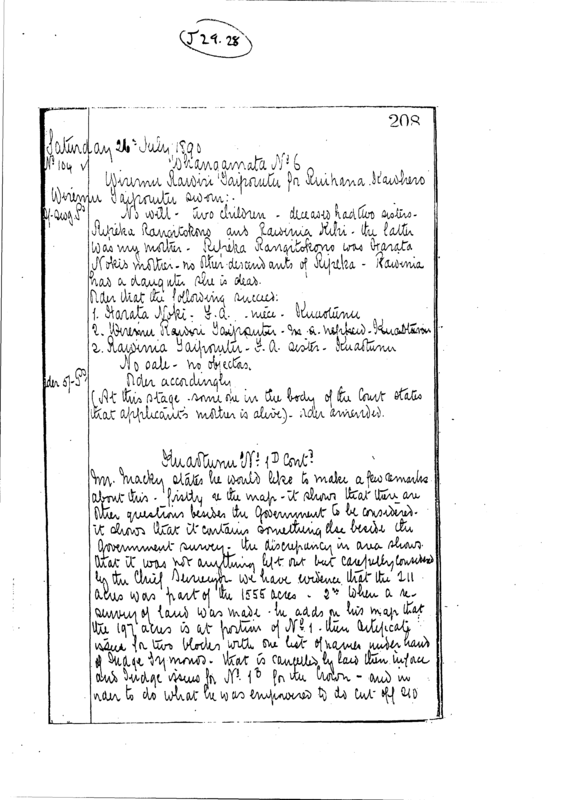 J 29. 28
208
Saturday 26th July 1890
No 104 Whangamata No 6
Wiremu Rawiri Taipoutu for Ruihana Kawhero
Wiremu Taipoutu sworn:-
5/- swg Pd No will - two children - deceased had two sisters -
Ripeka Rangitokono and Rawinia the latter
was my mother - Ripeka Rangitokono was Harata
Nokis mother - no other descendants of Ripeka - Rawinia
has a daughter she is dead.
Order that the following succeed:
1. Harata Noki - F.A. - niece - Kuaotunu
2. Wiremu Rawiri Taipoutu - M. a. nephew - Kuaotunu
2. Rawinia Taipoutu - F.A. sister - Kuaotunu
No sale - no objectors.
Order 5/- Pd Order accordingly
(At this stage some one in the body of the Court states
that applicant's mother is alive) - order amended.
Kuaotunu No 1D Contd
Mr. Macky states he would like to make a few remarks
about this - firstly re the map - it shows that there are
other questions besides the Government to be considered -
it shows that it contains something else beside the
Government survey - the discrepancy in area shows
that it was not anything left out but carefully considered
by the Chief Surveyor we have evidence that the 211
acres was part of the 1555 acres - 2nd When a re-
survey of land was made - he adds on his map that
the 197 acres is at portion of No 1 - then Certificate
issued for two blocks with one list of names under hand
of Judge Symonds - that is cancelled by law then
and Judge issues for No 1B for the Crown - and in
order to do what he was empowered to do cut off 210